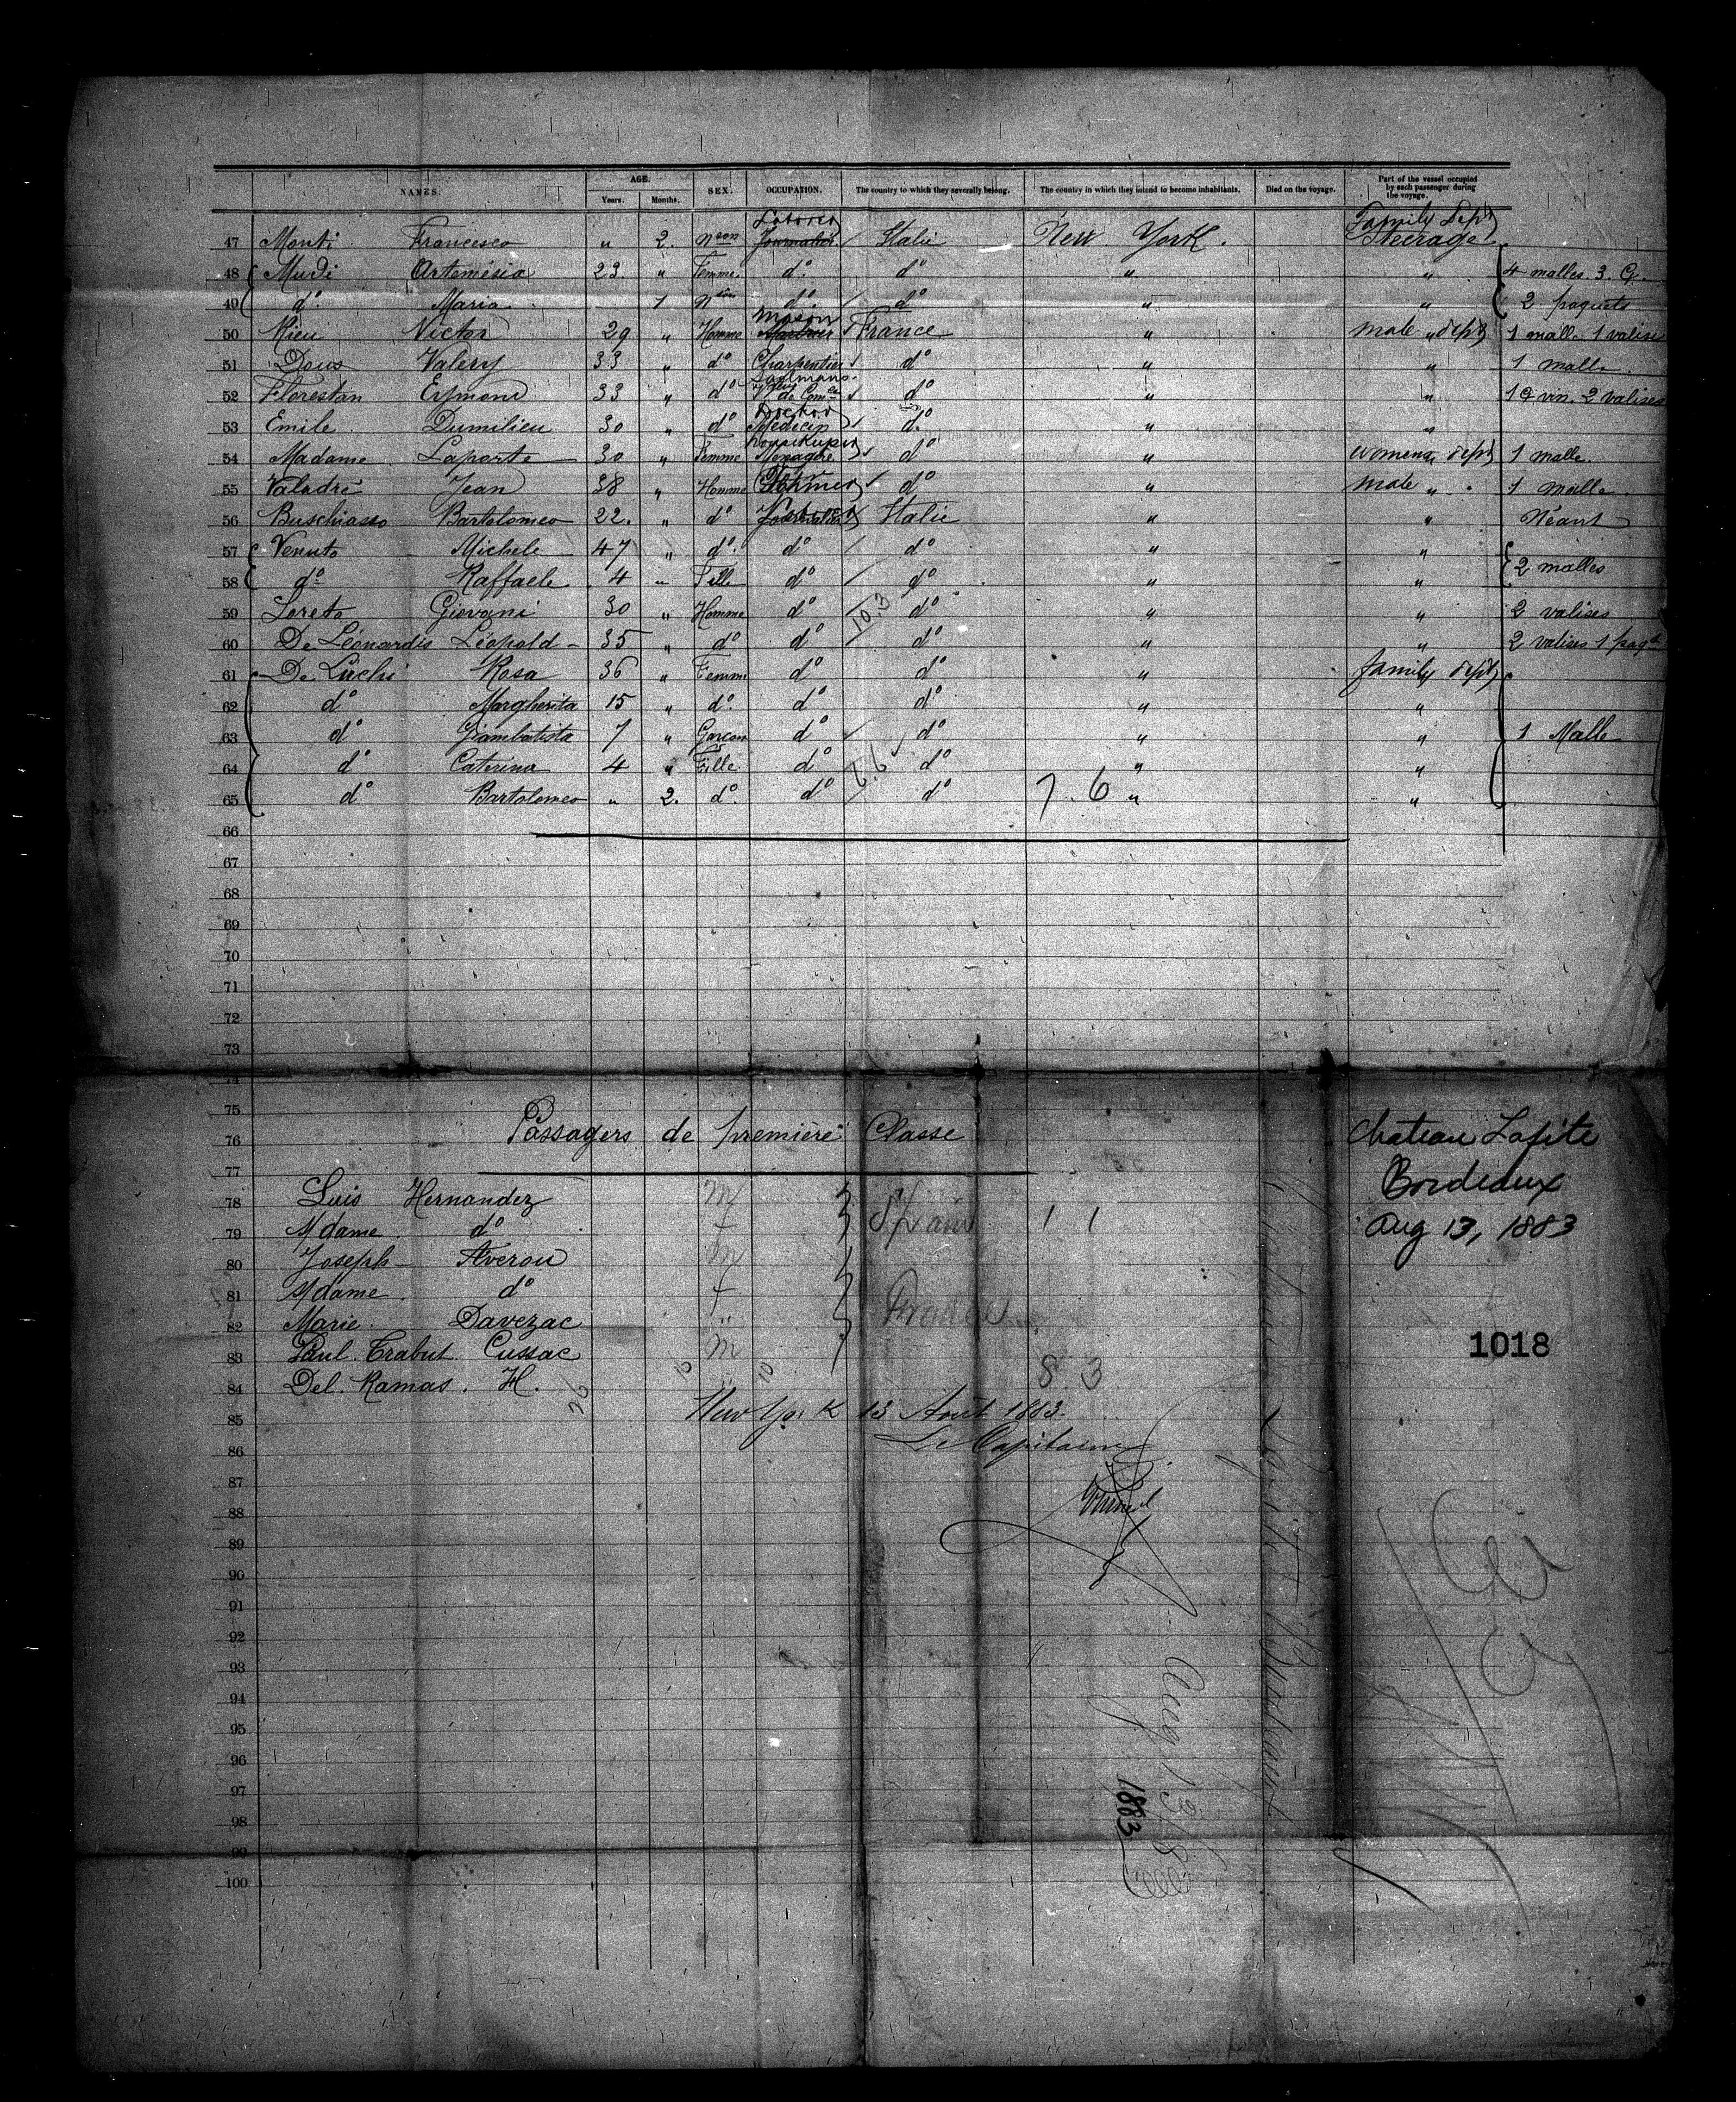 NAMES. AGE. Years. Months. SEX. OCCUPATION. The country to which they severally belong. The country in which they intend to become inhabitants. Died on the voyage. Part of the vessel occupied by each passenger during the voyage.
47 Monti Francesco " 2. Nson Laborer Journalier Italie New York. Family Dept Steerage
48 Mudi Artemisia 23. " Femme. do. do " " 4 malles. 3. C.
49 do. Maria 1 Nson do. do " " 2 paquets
50 Rieu Victor 29 " Homme mason France " male " dept 1 malle. 1 valise
51 Dous Valery 33 " do Charpentier do " " 1 malle.
52 Florestan Eymond 33 " do de Comce do " " 1 C vin. 2 valises
53 Emile Dumilieu 30 " do Doctor Médecin do. " "
54 Madame Laporte 30 " Femme housekuper Menagère do " womens dept 1 malle.
55 Valadrè Jean 38 " Homme Farmer do " male " . 1 malle.
56 Buschiasso Bartolomeo 22. " do Laborer Journalier Italie " " Néant
57 Venuto Michele 47 " do. do do " "
58 do Raffaele 4 " Fille do do " " 2 malles
59 Loreto Giovani 30 " Homme do 10.3 do " " 2 valises
60 De Léonardis Léopold 35 " do do do " " 2 valises 1 paqt
61 De Luchi Rosa 36 " Femme do do " family dept
62 do Margherita 15 " do. do do " "
63 do Giambatista 7 " Garcon do do " " 1 Malle
64 do Caterina 4 " Fille. do 6.6 do " "
65 do Bartolomeo " 2. do. do do 7.6 " "
66
67
68
69
70
71
72
73
74
75
76 Passagers de première Classe Chateau Lafite
77 Bordeaux
78 Luis Hernandez M
79 Mdame. do f Spain 1 1 Aug 13, 1883
80 Joseph Averou M
81 Mdame. do f
82 Marie. Davezac " France
83 Paul. Trabut. Cussac M 1018
84 Del. Ramas. H. 10 " 10 8.3
85 New York 13 Aout 1883.
86 Le Capitaine
87
88
89
90
91
92
93
94
95
96
97
98
99
100
Aug 13/83
1883